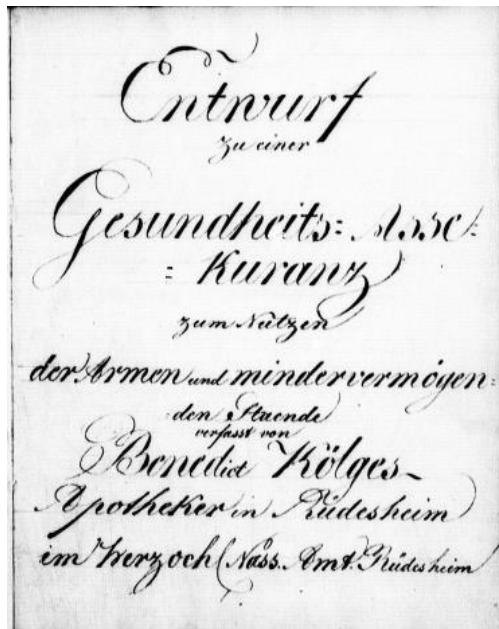 Entwurf
zu einer
Gesundheits= Asse=
= Kuranz
zum Nutzen
der Armen und mindervermögen=
den Staende
verfasst von
Benedict Kölges
Apotheker in Rüdesheim
im Herzoch( Nass. Amt. Rüdesheim